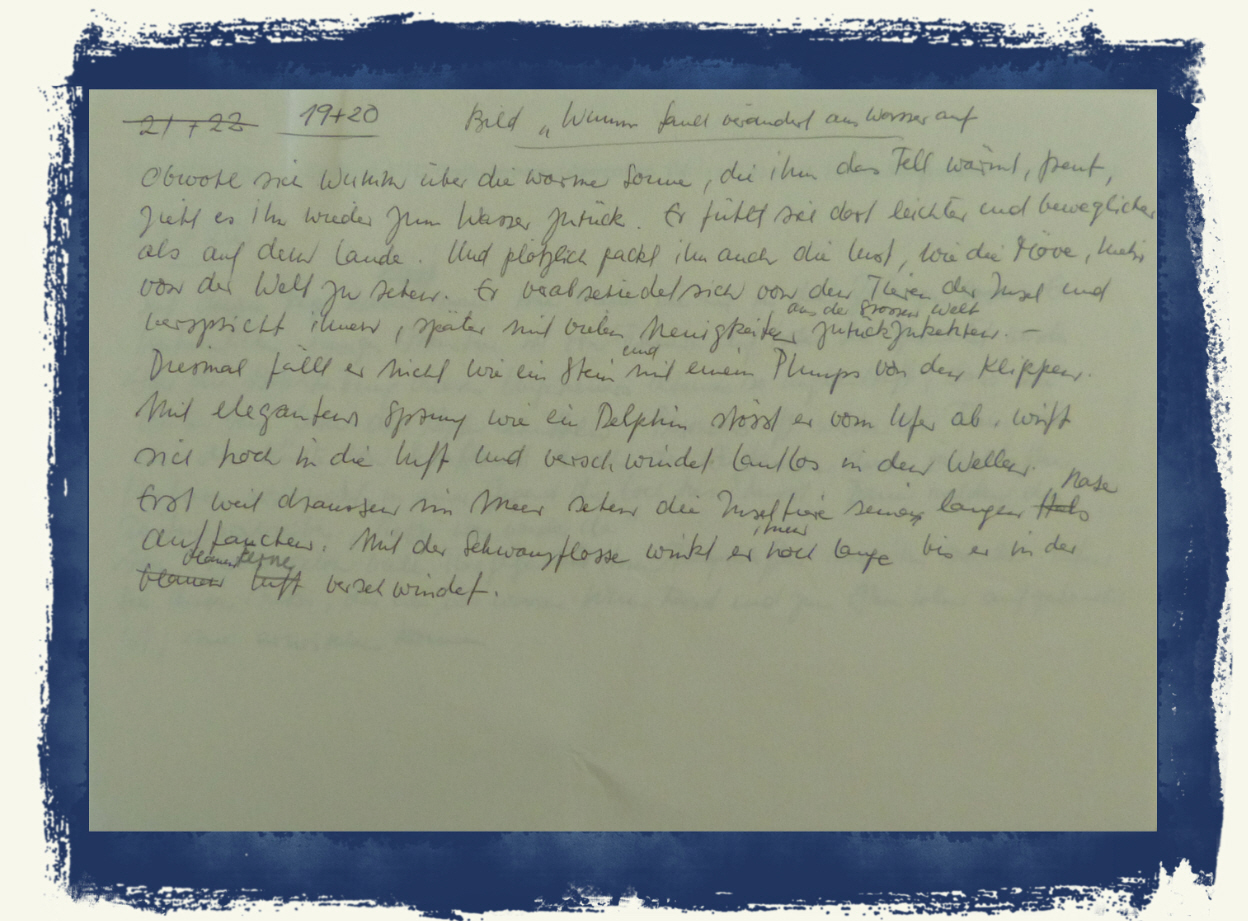 21 + 22 19+20 Bild „Wumm taucht verändert aus Wasser auf
Obwohl sich Wumm über die warme Sonne, die ihm das Fell wärmt, freut,
zieht es ihn wieder zum Wasser zurück. Er fühlt sich dort leichter und beweglicher
als auf dem Lande. Und plötzlich packt ihn auch die Lust, wie die Möve, mehr
von der Welt zu sehen. Er verabschiedet sich von den Tieren der Insel und
aus der grossen Welt
verspricht ihnen, später mit vielen Neuigkeiten zurückzukehren. –
und
Diesmal fällt er nicht wie ein Stein mit einem Plumps von den Klippen.
Mit elegantem Sprung wie ein Delphin stösst er vom Ufer ab, wirft
sich hoch in die Luft und verschwindet lautlos in den Wellen.
Nase
Erst weit draussen im Meer sehen die Inseltiere seine langen Hals
immer
auftauchen. Mit der Schwanzflosse winkt er noch lange bis er in der
blauen Ferne
blauen Luft verschwindet.